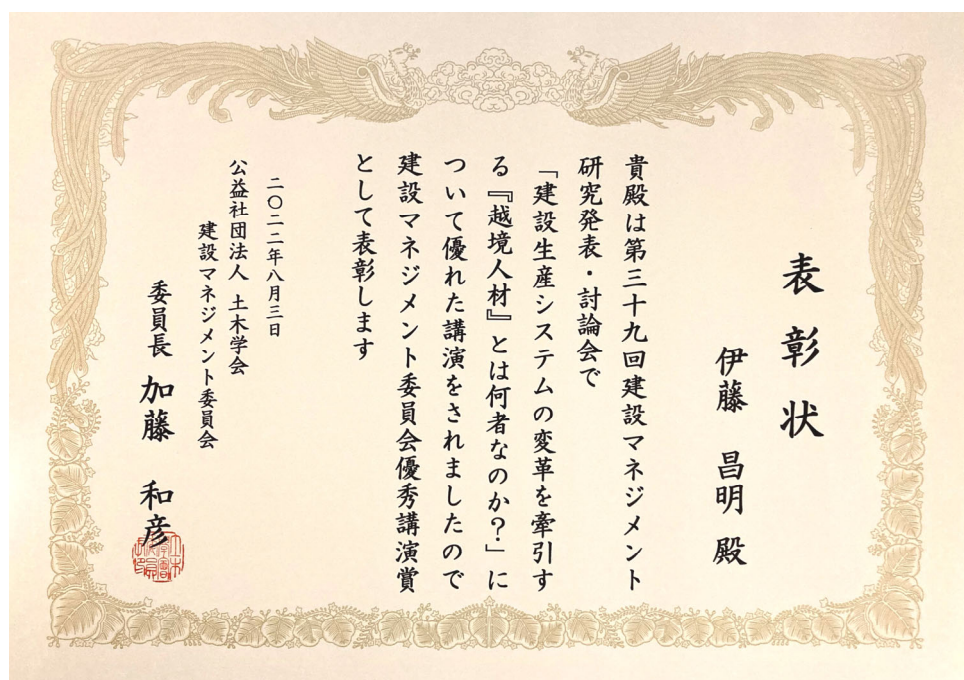 表彰状
伊藤 昌明 殿
貴殿は第三十九回建設マネジメント
研究発表・討論会で
「建設生産システムの変革を牽引す
る『越境人材』とは何者なのか?」に
ついて優れた講演をされましたので
建設マネジメント委員会優秀講演賞
として表彰します
二〇二二年八月三日
公益社団法人 土木学会
建設マネジメント委員会
委員長 加藤 和彦